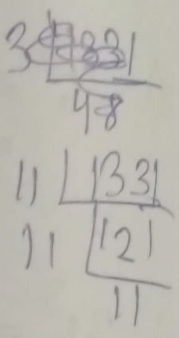 3
48
11 1331
11 121
11